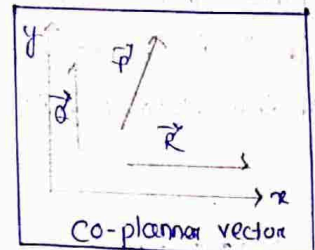 y
P⃗
Q⃗
R⃗
x
Co-plannar vector